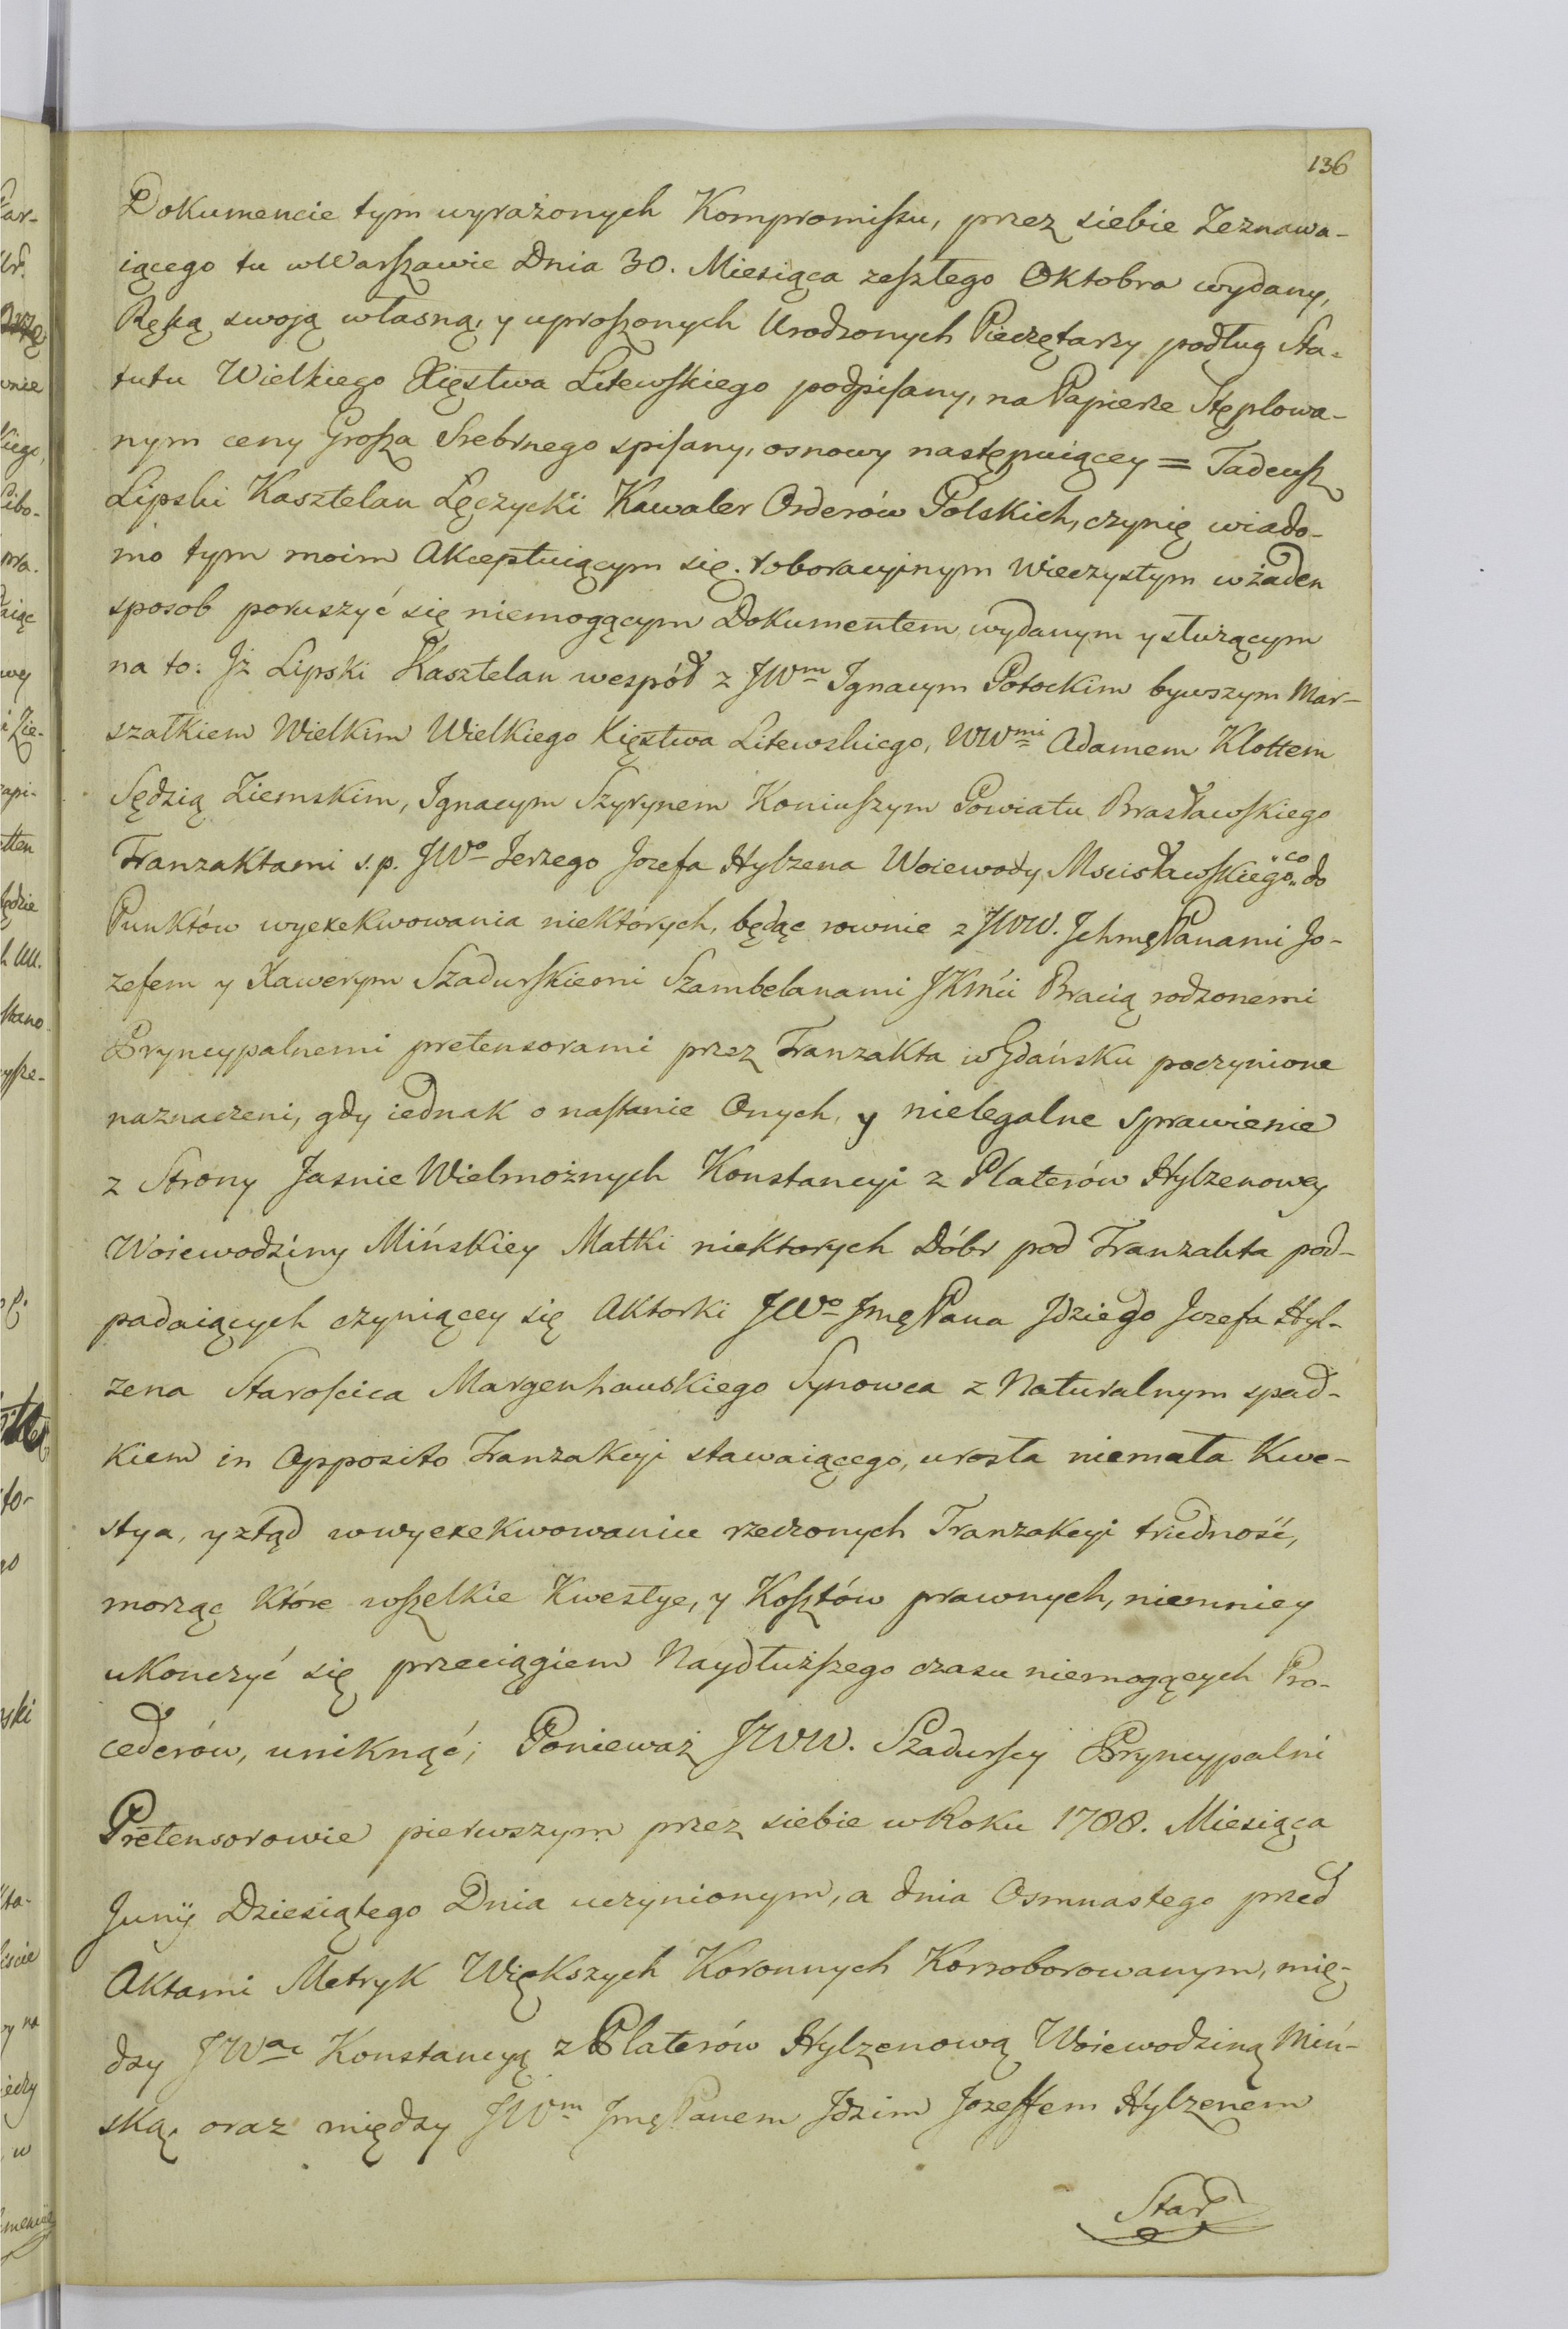 136
Dokumencie tym wyrażonych Kompromissu, przez siebie Zeznawa-
iącego tu w Warszawie Dnia 30. Miesiąca zeszłego Oktobra wydany,
Ręką swoją własną, y uproszonych Urodzonych Pieczętarzy podług Sta-
tutu Wielkiego Xięstwa Litewskiego podpisany, na Papierze Stęplowa-
nym ceny Grosza Srebrnego spisany, osnowy następuiącey = Tadeusz
Lipski Kasztelan Łęczycki Kawaler Orderów Polskich, czynię wiado-
mo tym moim Akceptuiącym się roboracyjnym wieczystym w żaden
sposob poruszyć się niemogącym Dokumentem wydanym y służącym
na to: Jż Lipski Kasztelan wespół z JWm Ignacym Potockim bywszym Mar-
szałkiem Wielkim Wielkiego Xięstwa Litewskiego, WWmi Adamem Klottem
Sędzią Ziemskim, Ignacym Szyrynem Koniuszym Powiatu Brasławskiego
Tranzaktami s.p. JWo Jerzego Jozefa Hylzena Woiewody Mscisławskiego co do
Punktów wyexekwowania niektórych, będąc rownie z JWW. Jchmę Panami Jo-
zefem y Xawerym Szadurskiemi Szambelanami JKMći Bracią rodzonemi
Pryncypalnemi pretensorami przez Tranzakta w Gdańsku poczynione
naznaczeni, gdy iednak o nastanie Onych, y nielegalne sprawienie
z Strony Jasnie Wielmożnych Konstancyi z Platerów Hylzenowey
Woiewodziny Mińskiey Matki niektorych Dóbr pod Tranzakta pod-
padaiących czyniącey się Aktorki JWo Jmę Pana Jdziego Jozefa Hyl-
zena Starościca Margenhauskiego Synowca z Naturalnym spad-
kiem in Opposito Tranzakcyi stawaiącego, urosła niemała Kwe-
stya, y ztąd w wyexekwowaniu rzeczonych Tranzakcyi trudność,
morząc które wszelkie Kwestye, y Kosztów prawnych, niemniey
ukonczyć się przeciągiem Naydłuższego czasu niemogących Pro-
cederów, uniknąć; Ponieważ JWW. Szadurscy Pryncypalni
Pretensorowie pierwszym przez siebie w Roku 1788. Miesiąca
Junij Dziesiątego Dnia uczynionym, a dnia Osmnastego przed
Aktami Metryk Większych Koronnych Korroborowanym, mię-
dzy JWą Konstancyą z Platerów Hylzenową Woiewodziną Miń-
ską, oraz między JWm Jmę Panem Jdzim Jozeffem Hylzenem
Star